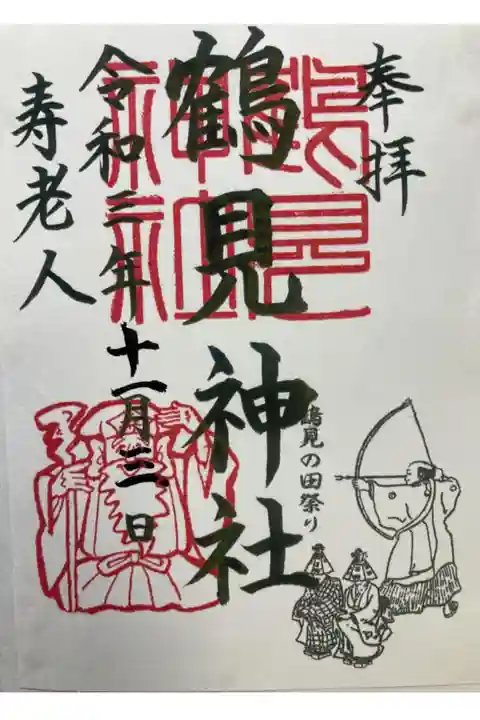 奉拝
鶴見神社
鶴見の田祭り
令和三年十一月三日
寿老人